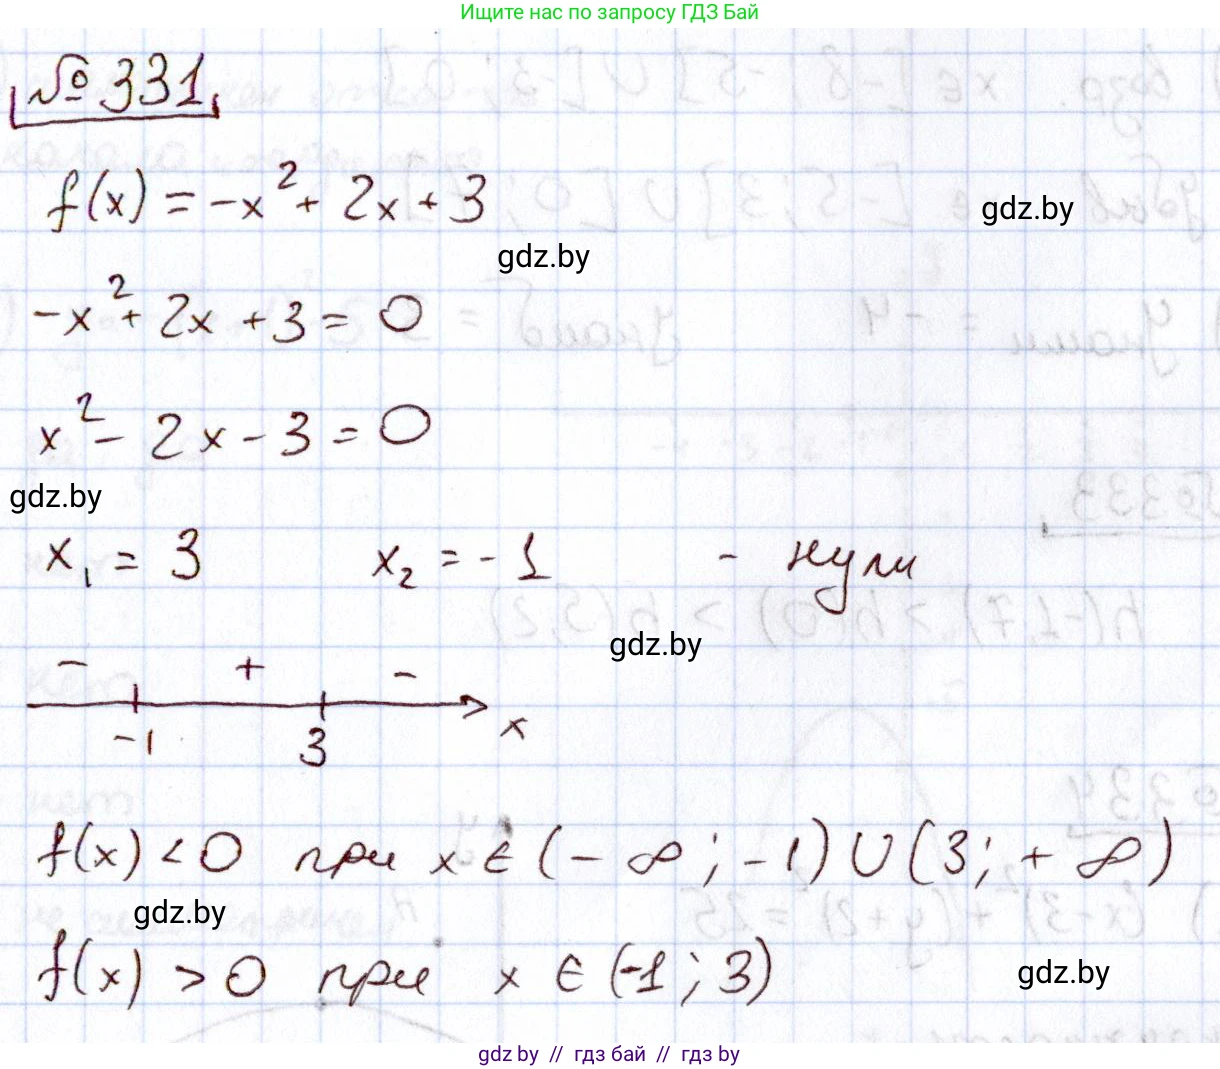 Ищите нас по запросу ГДЗ Бай
№ 331
f(x) = -x² + 2x + 3
gdz.by
gdz.by
-x² + 2x + 3 = 0
x² - 2x - 3 = 0
gdz.by
x₁ = 3 x₂ = -1 - нули
gdz.by
- + -
-1 3 x
f(x) < 0 при x ∈ (-∞; -1) ∪ (3; +∞)
gdz.by
f(x) > 0 при x ∈ (-1; 3)
gdz.by
gdz.by // гдз бай // гдз by